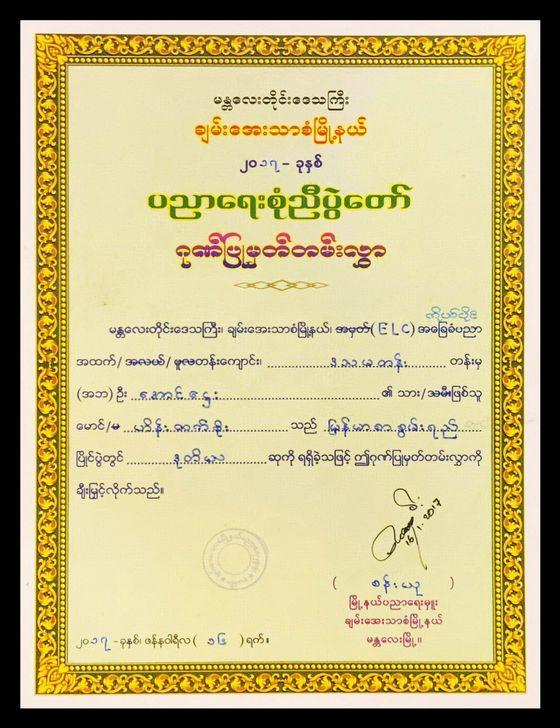 မန္တလေးတိုင်းဒေသကြီး
ချမ်းအေးသာစံမြို့နယ်
၂၀၁၇ - ခုနှစ်
ပညာရေးစုံညီပွဲတော်
ဂုဏ်ပြုမှတ်တမ်းလွှာ
ကိုယ်ပိုင်
မန္တလေးတိုင်းဒေသကြီး၊ ချမ်းအေးသာစံမြို့နယ်၊ အမှတ်(ELC) အခြေခံပညာ
အထက်/ အလယ်/ မူလတန်းကျောင်း၊ ဒသမတန်း တန်းမှ
(အဘ) ဦး အောင်ဌေး ၏ သား/သမီးဖြစ်သူ
မောင်/မ ဟိန်းထက်စိုး သည် မြန်မာစာစွမ်းရည်
ပြိုင်ပွဲတွင် ဒုတိယ ဆုကို ရရှိခဲ့သဖြင့် ဤဂုဏ်ပြုမှတ်တမ်းလွှာကို
ချီးမြှင့်လိုက်သည်။
16/1/2017
( စန်းယု )
မြို့နယ်ပညာရေးမှူး
ချမ်းအေးသာစံမြို့နယ်
မန္တလေးမြို့။
၂၀၁၇ -ခုနှစ်၊ ဇန်နဝါရီလ ( ၁၆ ) ရက်။